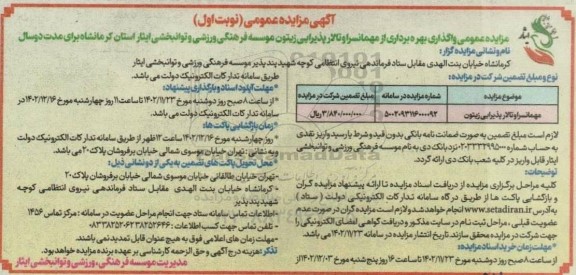 آگهی مزایده عمومی (نوبت اول)
مزایده عمومی واگذاری بهره برداری از مهمانسرا و تالار پذیرایی زیتون موسسه فرهنگی ورزشی و توانبخشی ایثار استان کرمانشاه برای مدت دو سال
نام و نشانی مزایده گزار:
کرمانشاه خیابان بنت الهدی مقابل ستاد فرماندهی نیروی انتظامی کوچه شهید پندپذیر موسسه فرهنگی ورزشی و توانبخشی ایثار
نوع و مبلغ تضمین شرکت در مزایده:
موضوع مزایده
شماره مزایده در سامانه
مبلغ تضمین شرکت در مزایده
مهمانسرا و تالار پذیرایی زیتون
۵۰۰۲۰۹۳۱۱۶۰۰۰۰۹۲
۳/۸۴۰/۰۰۰/۰۰۰ ریال
لازم است مبلغ تضمین به صورت ضمانت نامه بانکی بدون قید و شرط یا رسید واریز نقدی
به حساب شماره ۰۲۰۳۳۳۲۹۹۵۰۰ نزد بانک دی به نام موسسه فرهنگی ورزشی و توانبخشی
ایثار قابل واریز در کلیه شعب بانک دی ارائه گردد.
توضیحات:
کلیه مراحل برگزاری مزایده از دریافت اسناد مزایده تا ارائه پیشنهاد مزایده گران
و بازگشایی پاکت ها از طریق درگاه سامانه تدارکات الکترونیکی دولت (ستاد)
به آدرس www.setadiran.ir انجام خواهد شد و لازم است مزایده گران در صورت عدم
عضویت قبلی، مراحل ثبت نام در سایت مذکور و دریافت گواهی امضای الکترونیکی را
جهت شرکت در مزایده محقق سازند. تاریخ انتشار مزایده در سامانه ۱۴۰۲/۱۱/۲۳ می باشد.
*مهلت زمان خرید اسناد مزایده:
از ساعت ۸ صبح روز دوشنبه مورخ ۱۴۰۲/۱۱/۲۳ تا ساعت ۱۶ روز پنج شنبه مورخ ۱۴۰۲/۱۲/۰۳ از
طریق سامانه تدارکات الکترونیک دولت می باشد.
*مهلت آپلود اسناد و بارگذاری پیشنهاد:
*از ساعت ۸ صبح روز دوشنبه مورخ ۱۴۰۲/۱۱/۲۳ تا ساعت ۱۱ روز چهارشنبه مورخ ۱۴۰۲/۱۲/۱۶ در
سامانه تدارکات الکترونیک دولت می باشد.
*زمان بازگشایی پاکت ها:
*روز چهارشنبه مورخ ۱۴۰۲/۱۲/۱۶ ساعت ۱۲ ظهر از طریق سامانه تدارکات الکترونیک دولت
و به نشانی: تهران خیابان موسوی شمالی خیابان برفروشان پلاک ۲۰ می باشد.
*محل تحویل پاکت های تضمین به یکی از دو نشانی ذیل:
-تهران خیابان طالقانی خیابان موسوی شمالی خیابان برفروشان پلاک ۲۰
-کرمانشاه خیابان بنت الهدی مقابل ستاد فرماندهی نیروی انتظامی کوچه
شهید پندپذیر
*اطلاعات تماس سامانه ستاد جهت انجام مراحل عضویت در سامانه: مرکز تماس ۱۴۵۶
- تلفن تماس جهت کسب اطلاعات:
- مهلت زمان های اعلامی فوق به هیچ عنوان قابل تمدید نمی باشند.
تذکر: هزینه درج آگهی و حق الزحمه کارشناسی بر عهده برنده مزایده خواهد بود.
مدیریت موسسه فرهنگی، ورزشی و توانبخشی ایثار